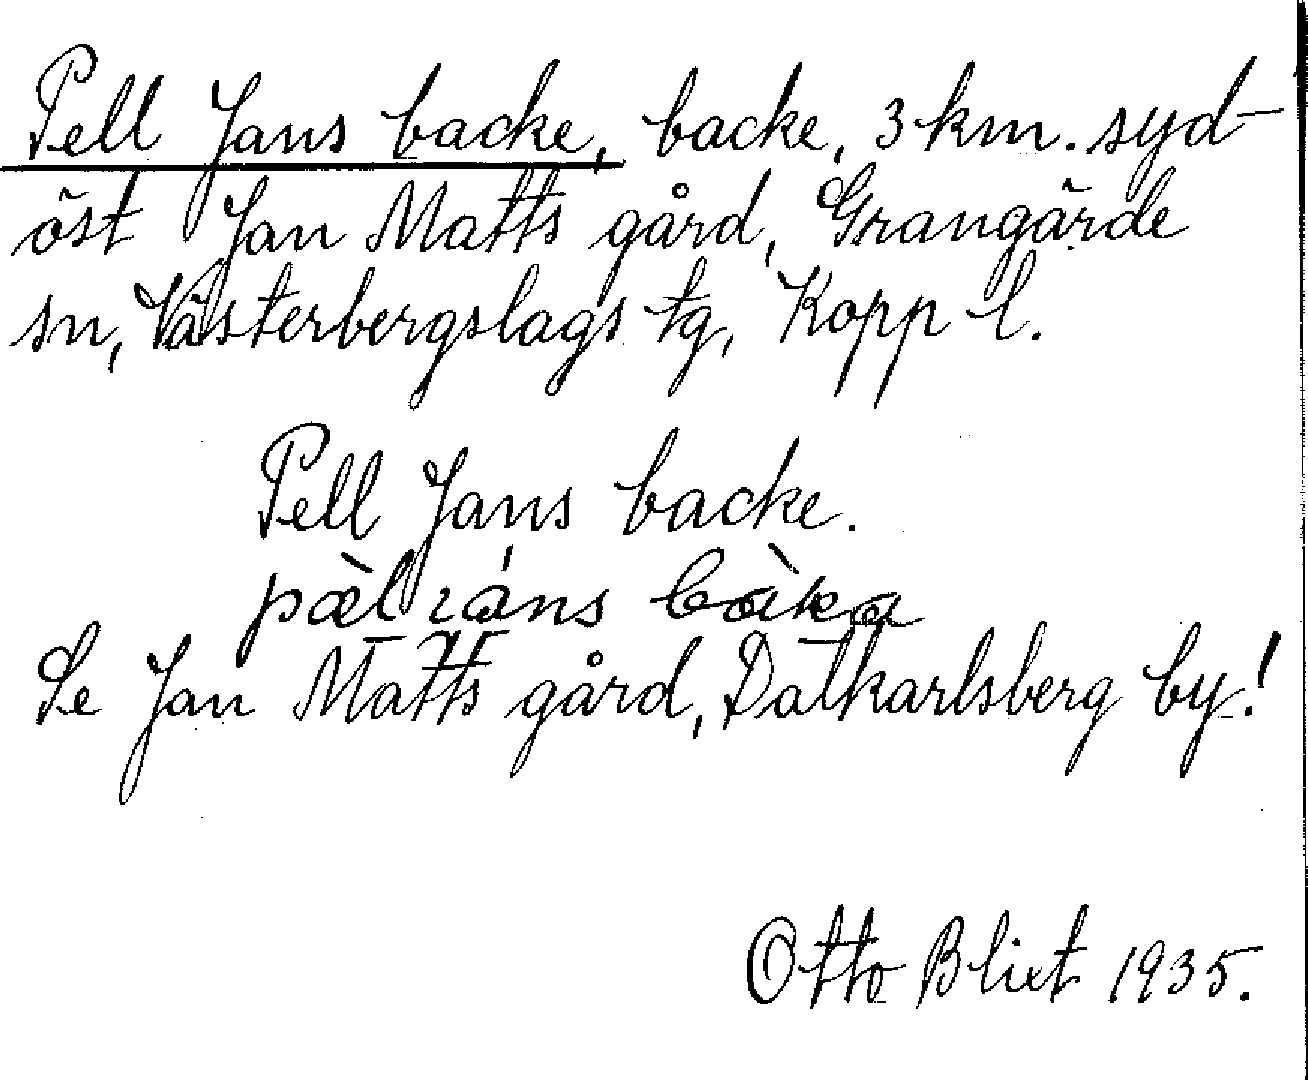 Pell Jans backe, backe, 3 km. syd-
öst Jan Matts gård, Grangärde
sn, Västerbergslags tg, Kopp l.
Pell Jans backe.
pæ̀l ıáns bàka
Se Jan Matts gård, Dalkarlsberg by!
Otto Blixt 1935.